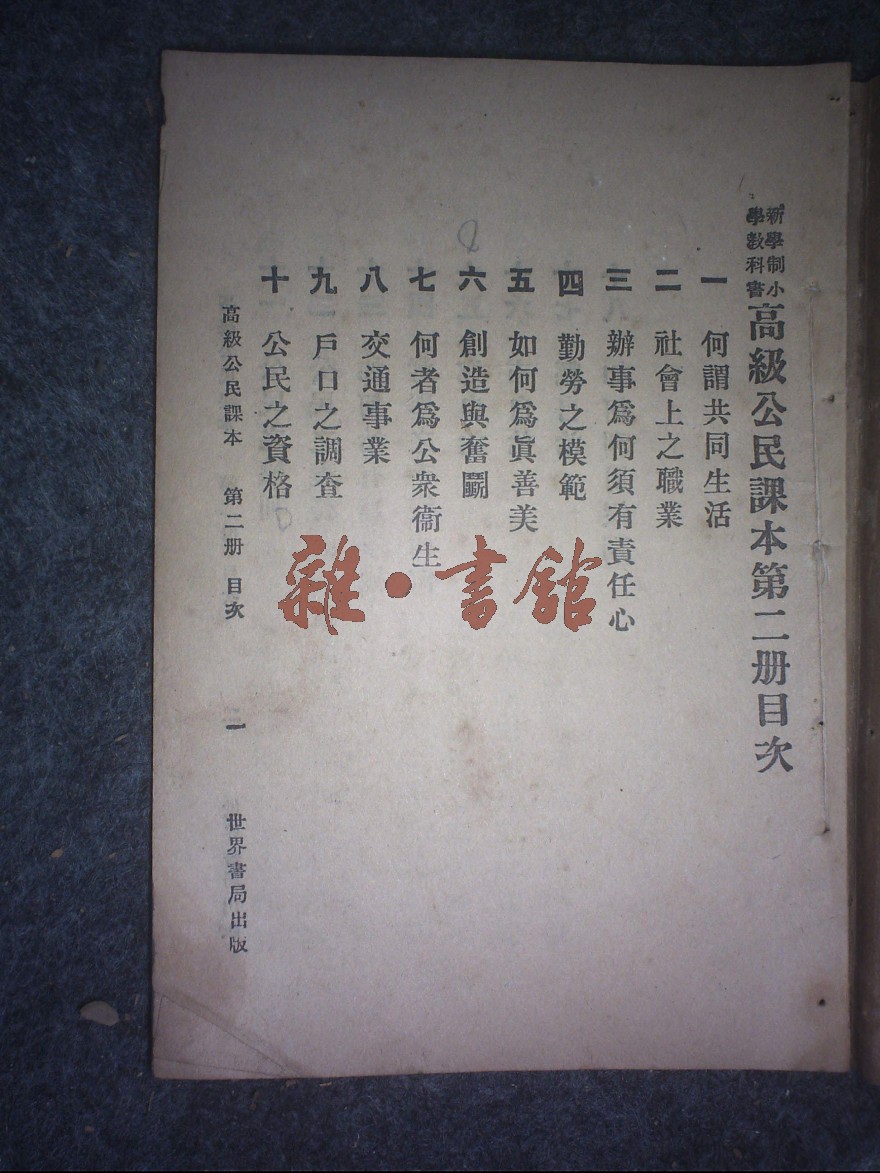 新學制小學教科書高級公民課本第二册目次
一 何謂共同生活
二 社會上之職業
三 辦事爲何須有責任心
四 勤勞之模範
五 如何爲眞善美
六 創造與奮鬭
七 何者爲公衆衞生
八 交通事業
九 戶口之調查
十 公民之資格
高級公民課本 第二册 目次 一 世界書局出版
雜·書館